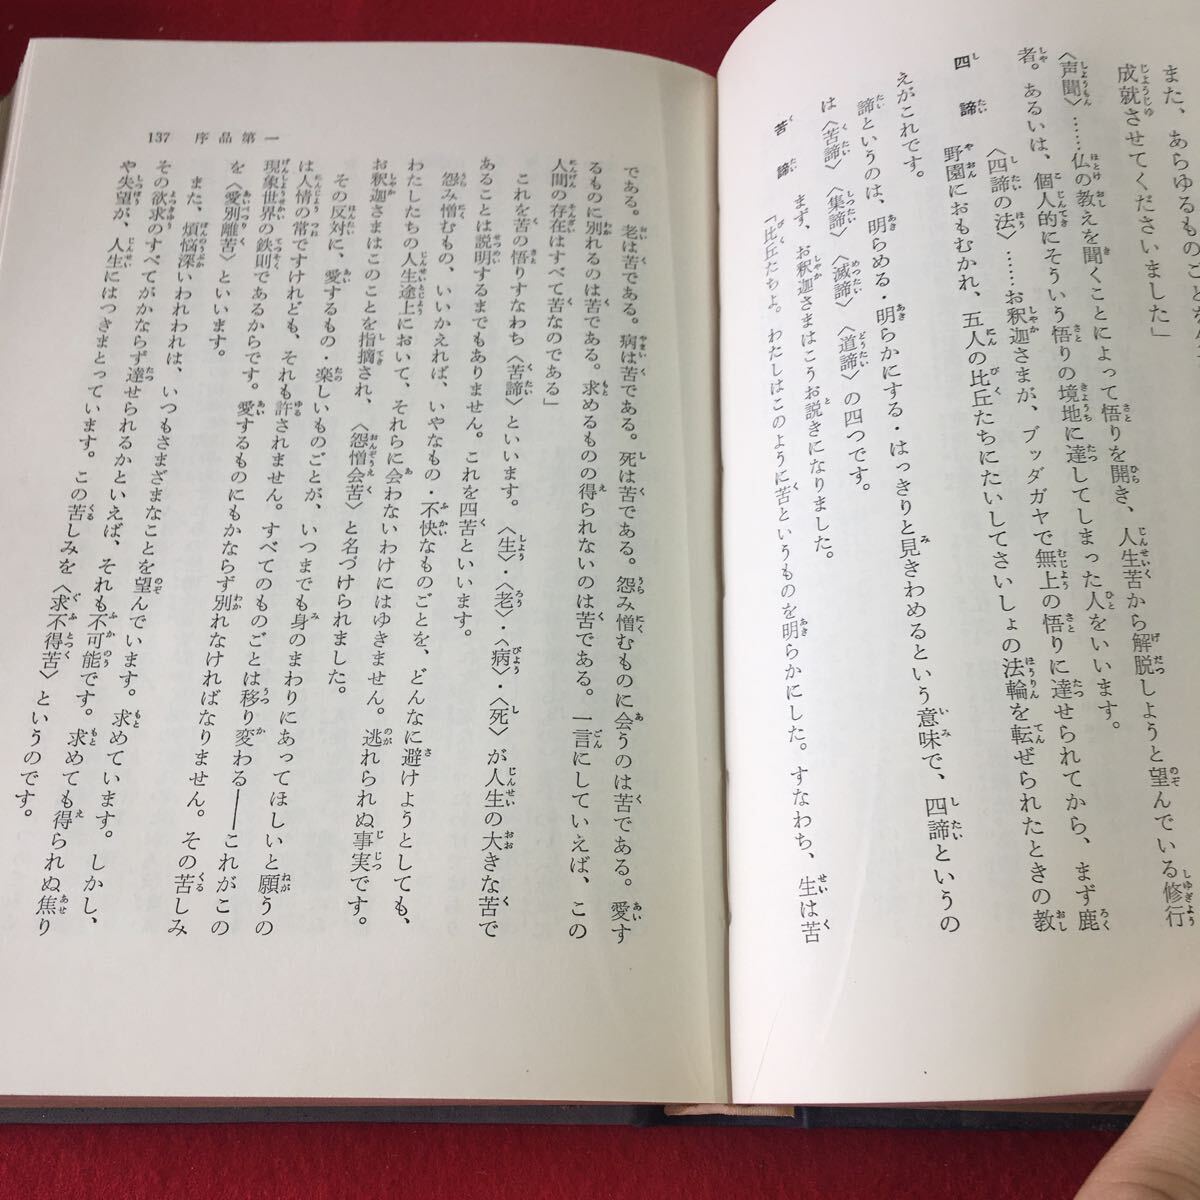 また、あらゆるものごとを
成就させてくださいました」
〈声聞〉……仏の教えを聞くことによって悟りを開き、人生苦から解脱しようと望んでいる修行
者。あるいは、個人的にそういう悟りの境地に達してしまった人をいいます。
〈四諦の法〉……お釈迦さまが、ブッダガヤで無上の悟りに達せられてから、まず鹿
四諦
野園におもむかれ、五人の比丘たちにたいしてさいしょの法輪を転ぜられたときの教
えがこれです。
諦というのは、明らめる・明らかにする・はっきりと見きわめるという意味で、四諦というの
は〈苦諦〉〈集諦〉〈滅諦〉〈道諦〉の四つです。
苦諦
まず、お釈迦さまはこうお説きになりました。
「比丘たちよ。わたしはこのように苦というものを明らかにした。すなわち、生は苦
である。老は苦である。病は苦である。死は苦である。怨み憎むものに会うのは苦である。愛す
るものに別れるのは苦である。求めるものの得られないのは苦である。一言にしていえば、この
人間の存在はすべて苦なのである」
これを苦の悟りすなわち〈苦諦〉といいます。〈生〉・〈老〉・〈病〉・〈死〉が人生の大きな苦で
あることは説明するまでもありません。これを四苦といいます。
怨み憎むもの、いいかえれば、いやなもの・不快なものごとを、どんなに避けようとしても、
わたしたちの人生途上において、それらに会わないわけにはゆきません。逃れられぬ事実です。
お釈迦さまはこのことを指摘され、〈怨憎会苦〉と名づけられました。
その反対に、愛するもの・楽しいものごとが、いつまでも身のまわりにあってほしいと願うの
は人情の常ですけれども、それも許されません。すべてのものごとは移り変わる――これがこの
現象世界の鉄則であるからです。愛するものにもかならず別れなければなりません。その苦しみ
を〈愛別離苦〉といいます。
また、煩悩深いわれわれは、いつもさまざまなことを望んでいます。求めています。しかし、
その欲求のすべてがかならず達せられるかといえば、それも不可能です。求めても得られぬ焦り
や失望が、人生にはつきまとっています。この苦しみを〈求不得苦〉というのです。
137 序品第一